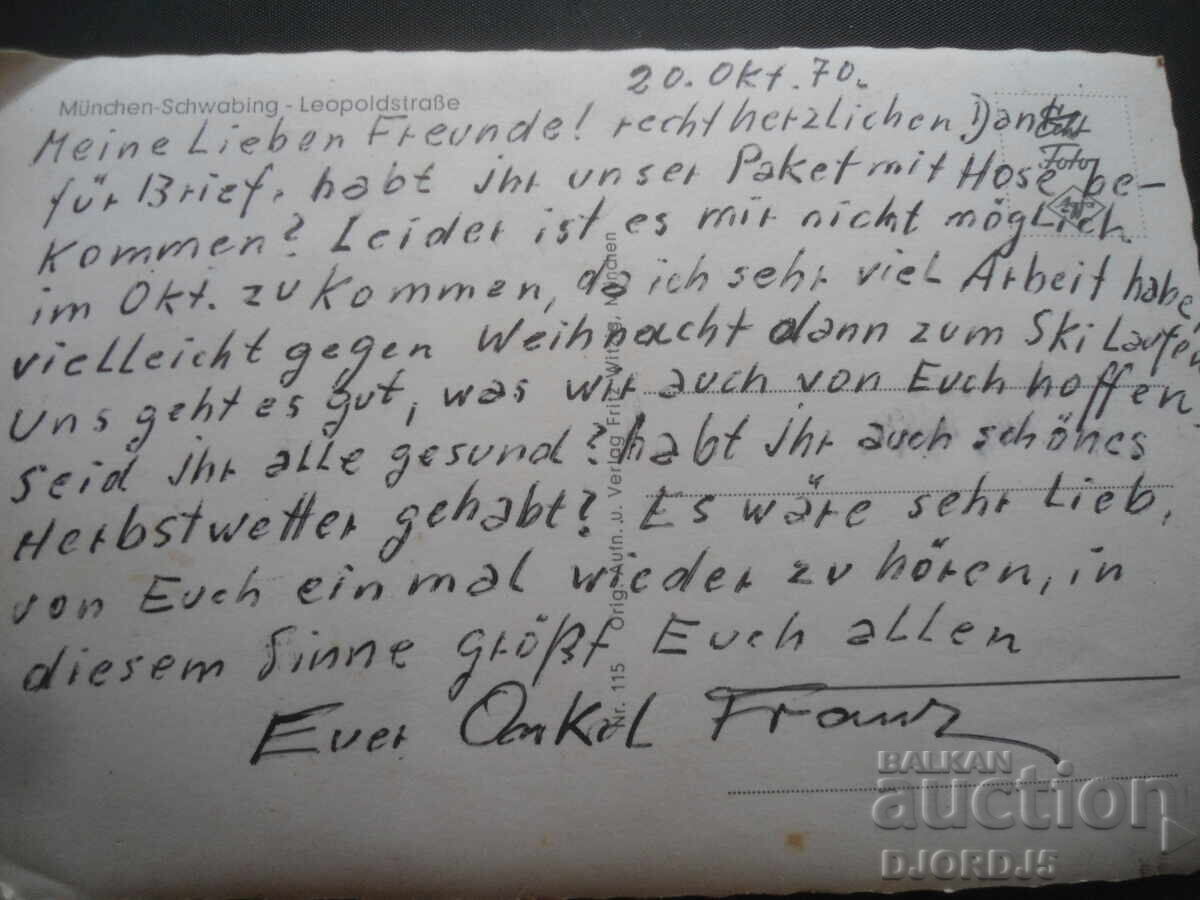 München-Schwabing - Leopoldstraße
20. Okt. 70.
Meine Lieben Freunde! recht herzlichen Dank
für Brief, habt ihr unser Paket mit Hose be-
kommen? Leider ist es mir nicht möglich
im Okt. zu kommen, da ich sehr viel Arbeit habe
vielleicht gegen Weihnacht dann zum Ski Laufen
Uns geht es gut, was wir auch von Euch hoffen.
seid ihr alle gesund? habt ihr auch schönes
Herbstwetter gehabt? Es wäre sehr Lieb,
von Euch einmal wieder zu hören, in
diesem Sinne größt Euch allen
Euer Onkel Franz
Echt
Foto
Nr. 115 Orig. Aufn. u. Verlag Fritz Witzig, München
BALKAN
auction
DJORDJ5